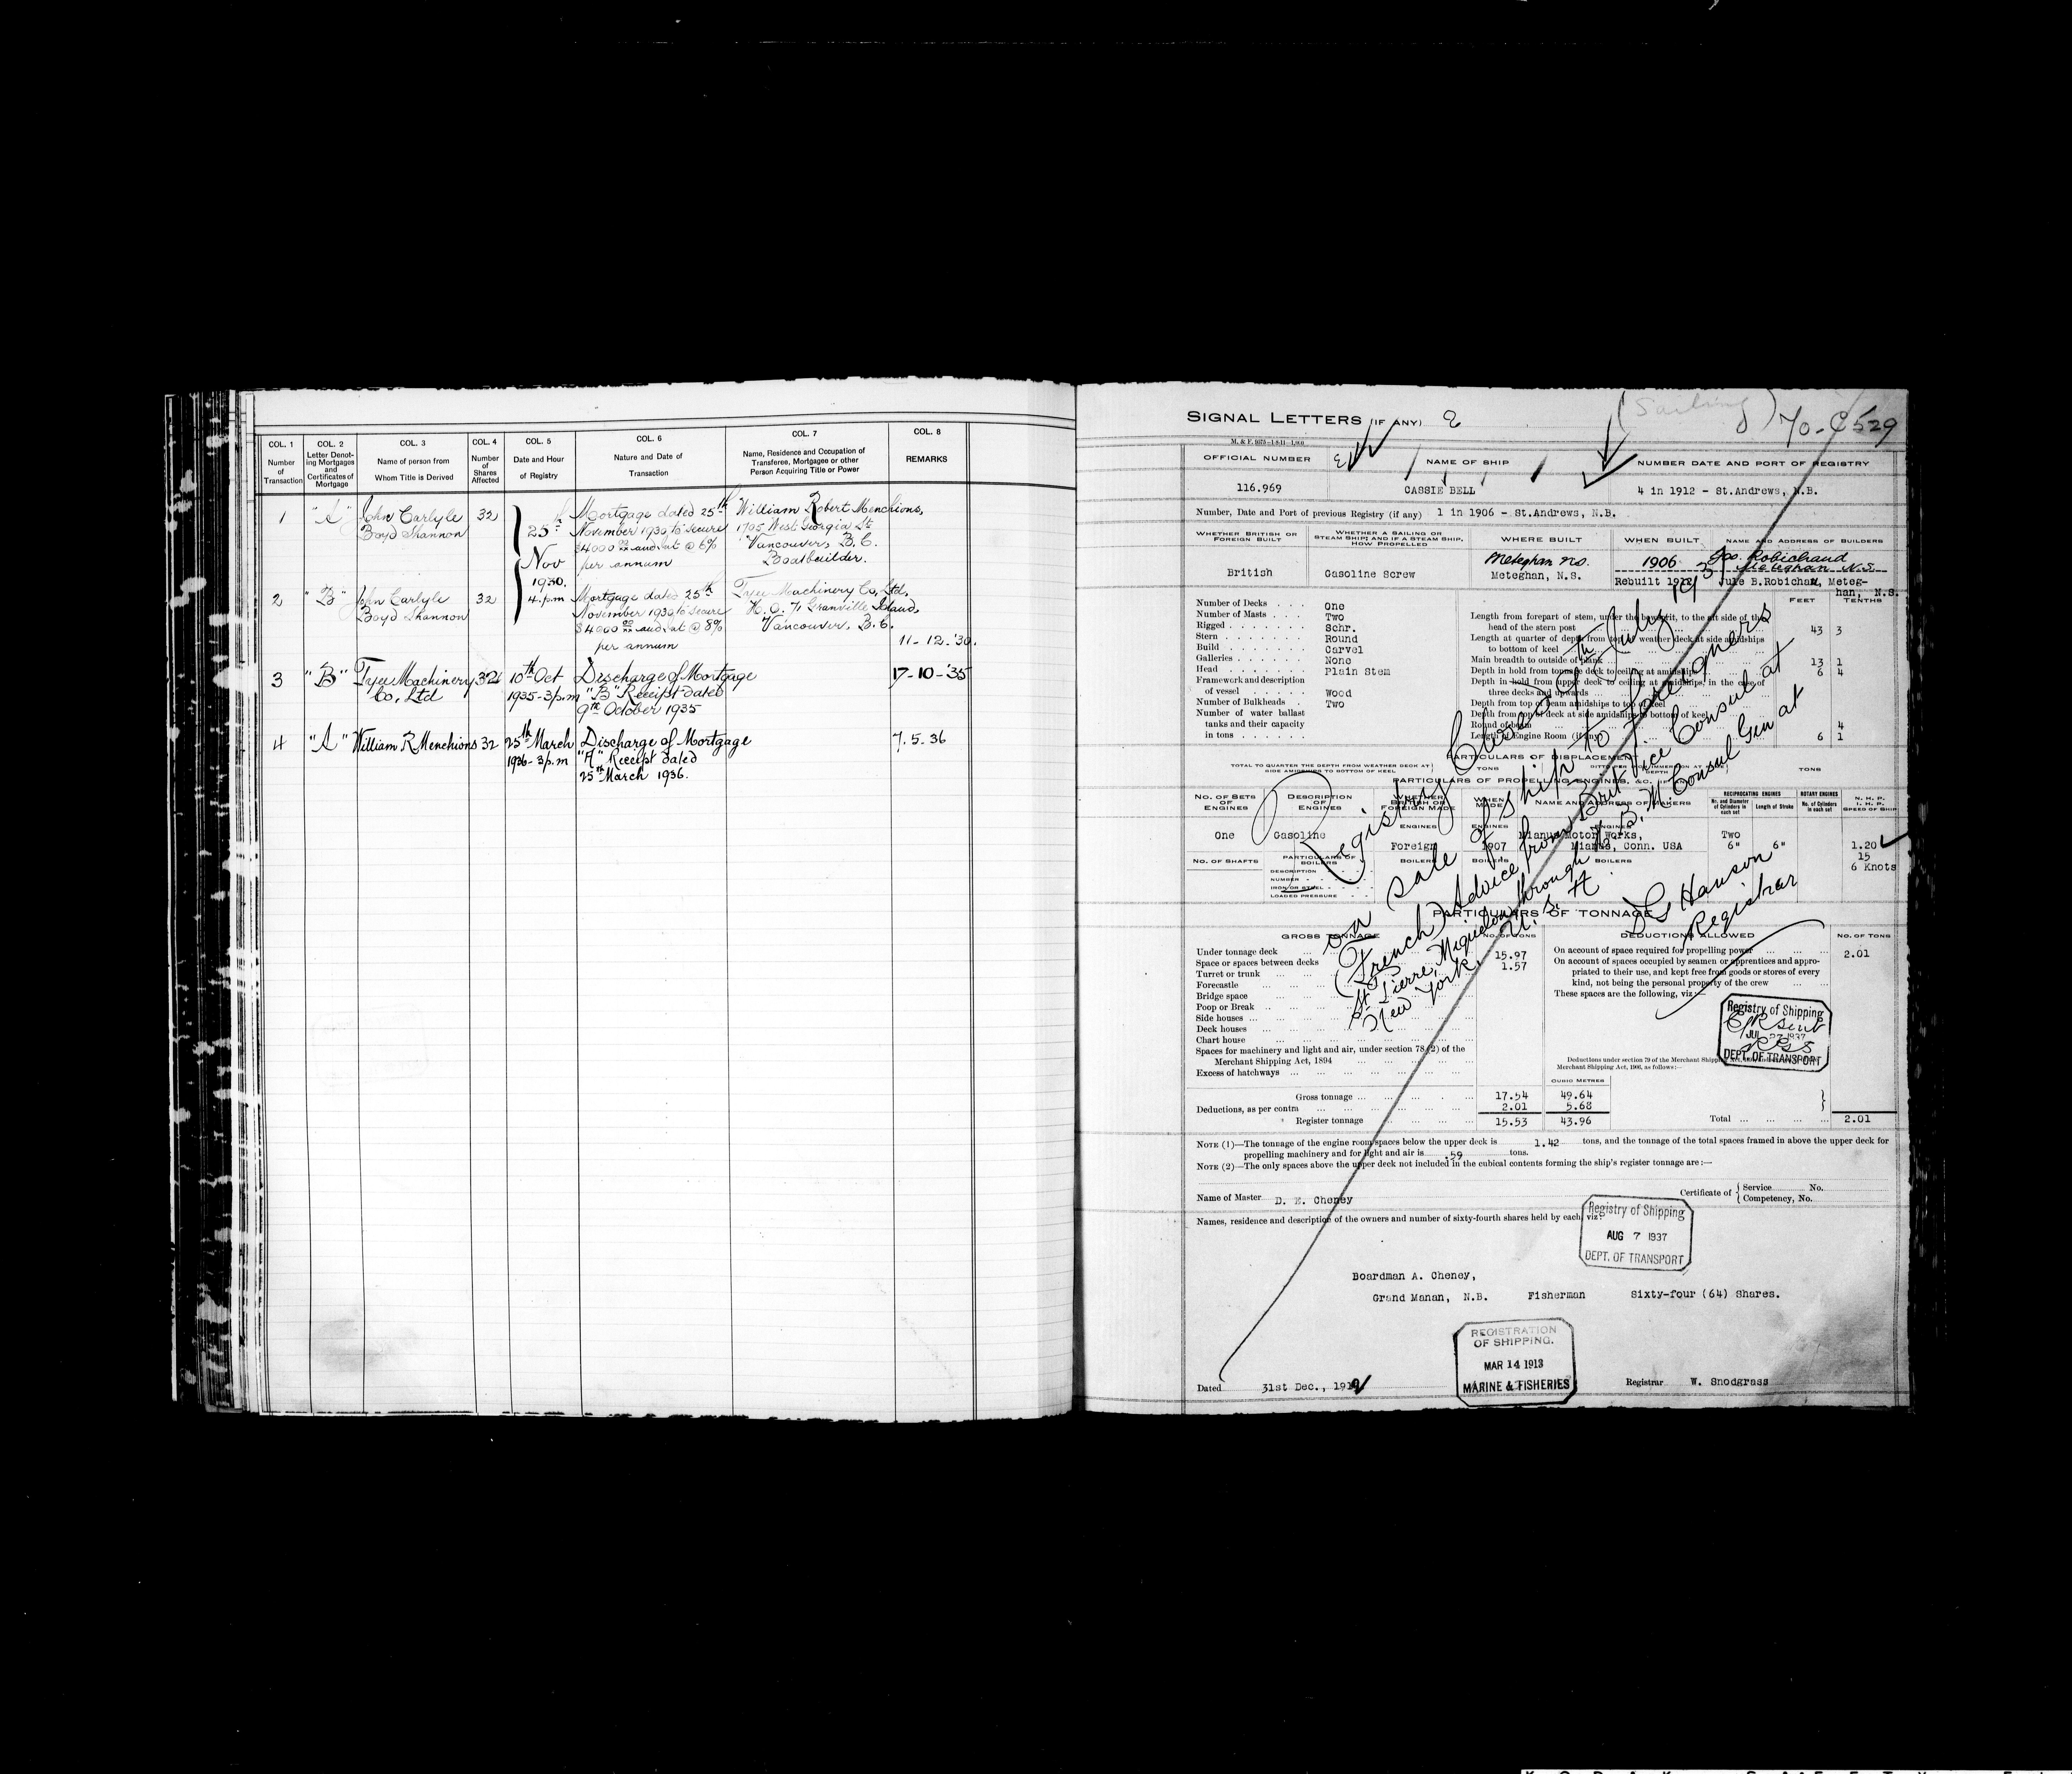 COL. 1
Number
of
Transaction
COL. 2
Letter Denot-
ing Mortgages
and
Certificates of
Mortgage
COL. 3
Name of person from
Whom Title is Derived
COL. 4
Number
of
Shares
Affected
COL. 5
Date and Hour
of Registry
COL. 6
Nature and Date of
Transaction
COL. 7
Name, Residence and Occupation of
Transferee, Mortgagee or other
Person Acquiring Title or Power
COL. 8
REMARKS
1 "A" John Carlyle
Boyd Shannon
32
25th
Nov
1930.
4.p.m
Mortgage dated 25th
November 1930 to secure
$4000 00/xx and int @ 6%
per annum
William Robert Menchions,
1705 West Georgia St
Vancouver, B.C.
Boatbuilder.
2 "B" John Carlyle
Boyd Shannon
32
Mortgage dated 25th
November 1930 to secure
$4000 00/xx and int @ 8%
per annum
Tyee Machinery Co, Ltd,
H.O. Granville Island,
Vancouver, B.C.
11-12.'30.
3 "B" Tyee Machinery
Co, Ltd
32
10th Oct
1935-3p.m
Discharge of Mortgage
"B" Receipt Dated
9th October 1935
17-10-'35
4 "A" William R Menchions 32
25th March
1936-3p.m
Discharge of Mortgage
"A" Receipt dated
25th March 1936.
7.5.36
SIGNAL LETTERS (IF ANY)
(Sailing)
70-C529
OFFICIAL NUMBER
NAME OF SHIP
NUMBER DATE AND PORT OF REGISTRY
116.969
CASSIE BELL
4 in 1912 - St.Andrews, N.B.
Number, Date and Port of previous Registry (if any) 1 in 1906 - St.Andrews, N.B.
WHETHER BRITISH OR
FOREIGN BUILT
WHETHER A SAILING OR
STEAM SHIP; AND IF A STEAM SHIP,
HOW PROPELLED
WHERE BUILT
WHEN BUILT
NAME AND ADDRESS OF BUILDERS
British
Gasoline Screw
Meteghan N.S.
Meteghan, N.S.
1906
Rebuilt 1912
Jos. Robichaud
Meteghan N.S.
Jule B.Robichau, Meteg-
han, N.S.
FEET TENTHS
Number of Decks One
Number of Masts Two
Rigged Schr.
Stern Round
Build Carvel
Galleries None
Head Plain Stem
Framework and description
of vessel Wood
Number of Bulkheads Two
Number of water ballast
tanks and their capacity
in tons
Length from forepart of stem, under the bowsprit, to the aft side of the
head of the stern post 43 3
Length at quarter of depth from top of weather deck at side amidships
to bottom of keel
Main breadth to outside of plank 13 1
Depth in hold from tonnage deck to ceiling at amidships 6 4
Depth in hold from upper deck to ceiling at amidships, in the case of
three decks and upwards
Depth from top of beam amidships to top of keel
Depth from top of deck at side amidships to bottom of keel
Round of beam 4
Length of Engine Room (if any) 6 1
PARTICULARS OF DISPLACEMENT
TOTAL TO QUARTER THE DEPTH FROM WEATHER DECK AT
SIDE AMIDSHIPS TO BOTTOM OF KEEL
TONS
TONS
PARTICULARS OF PROPELLING ENGINES, &C.
NO. OF SETS
OF
ENGINES
DESCRIPTION
OF
ENGINES
WHETHER
BRITISH OR
FOREIGN MADE
WHEN
MADE
NAME AND ADDRESS OF MAKERS
RECIPROCATING ENGINES
No. and Diameter
of Cylinders in
each set
Length of Stroke
ROTARY ENGINES
No. of Cylinders
in each set
N. H. P.
I. H. P.
SPEED OF SHIP
ENGINES
ENGINES
ENGINES
One
Gasoline
Foreign
1907
Mianus Motor Works,
Mianus, Conn. USA
Two
6"
6"
1.20
15
6 Knots
NO. OF SHAFTS
PARTICULARS OF
BOILERS
BOILERS
BOILERS
BOILERS
DESCRIPTION
NUMBER
IRON OR STEEL
LOADED PRESSURE
PARTICULARS OF TONNAGE
GROSS TONNAGE
NO. OF TONS
DEDUCTIONS ALLOWED
NO. OF TONS
Under tonnage deck 15.97
Space or spaces between decks 1.57
Turret or trunk
Forecastle
Bridge space
Poop or Break
Side houses
Deck houses
Chart house
Spaces for machinery and light and air, under section 78 (2) of the
Merchant Shipping Act, 1894
Excess of hatchways
On account of space required for propelling power 2.01
On account of spaces occupied by seamen or apprentices and appro-
priated to their use, and kept free from goods or stores of every
kind, not being the personal property of the crew
These spaces are the following, viz:—
Registry of Shipping
JUL 27 1937
DEPT. OF TRANSPORT
Deductions under section 79 of the Merchant Shipping
Merchant Shipping Act, 1906, as follows:—
CUBIC METRES
Gross tonnage 17.54 49.64
Deductions, as per contra 2.01 5.68
Register tonnage 15.53 43.96
Total 2.01
NOTE (1)—The tonnage of the engine room spaces below the upper deck is 1.42 tons, and the tonnage of the total spaces framed in above the upper deck for
propelling machinery and for light and air is .59 tons.
NOTE (2)—The only spaces above the upper deck not included in the cubical contents forming the ship's register tonnage are:—
Name of Master D. E. Cheney
Certificate of Service No.
Competency, No.
Names, residence and description of the owners and number of sixty-fourth shares held by each, viz:
Registry of Shipping
AUG 7 1937
DEPT. OF TRANSPORT
Boardman A. Cheney,
Grand Manan, N.B. Fisherman Sixty-four (64) Shares.
REGISTRATION
OF SHIPPING.
MAR 14 1913
MARINE & FISHERIES
Dated 31st Dec., 1912
Registrar W. Snodgrass
Registry Closed 9th July 193
on sale of ship to foreigners
(French) Advice from Brit Vice Consul at
St Pierre, Miquelon through H. B. M. Consul Gen at
New York, U. S. A.
D G Hanson
Registrar